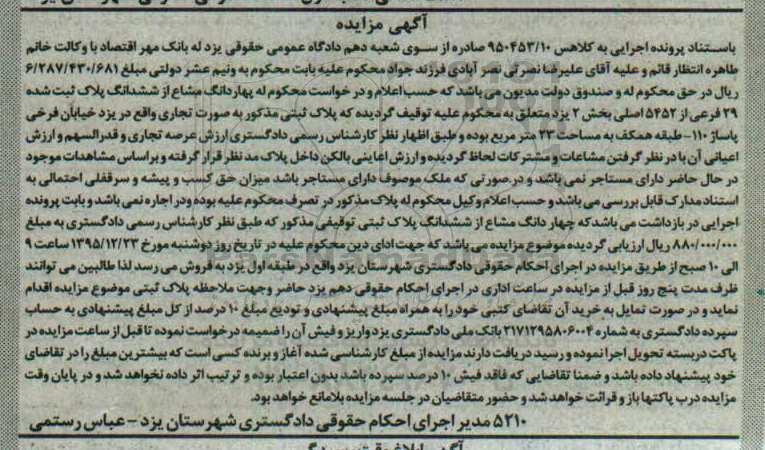 آگهی مزایده
باستناد پرونده اجرایی به کلاهس ۹۵۰۴۵۳/۱۰ صادره از سوی شعبه دهم دادگاه عمومی حقوقی یزد له بانک مهر اقتصاد با وکالت خانم
طاهره انتظار قائم و علیه آقای علیرضا نصرتی نصر آبادی فرزند جواد محکوم علیه بابت محکوم به ونیم عشر دولتی مبلغ ۶/۲۸۷/۴۳۰/۶۸۱
ریال در حق محکوم له و صندوق دولت مدیون می باشد که حسب اعلام و در خواست محکوم له چهاردانگ مشاع از ششدانگ پلاک ثبت شده
۲۹ فرعی از ۵۴۵۲ اصلی بخش ۲ یزد متعلق به محکوم علیه توقیف گردیده که پلاک ثبتی مذکور به صورت تجاری واقع در یزد خیابان فرخی
پاساژ ۱۱۰- طبقه همکف به مساحت ۲۳ متر مربع بوده و طبق اظهار نظر کارشناس رسمی دادگستری ارزش عرصه تجاری و قدرالسهم و ارزش
اعیانی آن با در نظر گرفتن مشاعات و مشترکات لحاظ گردیده و ارزش اعاینی بالکن داخل پلاک مد نظر قرار گرفته و براساس مشاهدات موجود
در حال حاضر دارای مستاجر نمی باشد و در صورتی که ملک موصوف دارای مستاجر باشد میزان حق کسب و پیشه و سرقفلی احتمالی به
استناد مدارک قابل بررسی می باشد و حسب اعلام وکیل محکوم له پلاک مذکور در تصرف محکوم علیه بوده و در اجاره نمی باشد و بابت پرونده
اجرایی در بازداشت می باشد که چهار دانگ مشاع از ششدانگ پلاک ثبتی توقیفی مذکور که طبق نظر کارشناس رسمی دادگستری به مبلغ
۸۸۰/۰۰۰/۰۰۰ ریال ارزیابی گردیده موضوع مزایده می باشد که جهت ادای دین محکوم علیه در تاریخ روز دوشنبه مورخ ۱۳۹۵/۱۲/۲۳ ساعت ۹
الی ۱۰ صبح از طریق مزایده در اجرای احکام حقوقی دادگستری شهرستان یزد واقع در طبقه اول یزد به فروش می رسد لذا طالبین می توانند
ظرف مدت پنج روز قبل از مزایده در ساعت اداری در اجرای احکام حقوقی دهم یزد حاضر و جهت ملاحظه پلاک ثبتی موضوع مزایده اقدام
نماید و در صورت تمایل به خرید آن تقاضای کتبی خود را به همراه مبلغ پیشنهادی و تودیع مبلغ ۱۰ درصد از کل مبلغ پیشنهادی به حساب
سپرده دادگستری به شماره ۲۱۷۱۲۹۵۸۰۶۰۰۴ بانک ملی دادگستری یزد واریز و فیش آن را ضمیمه درخواست نموده تا قبل از ساعت مزایده در
پاکت دربسته تحویل اجرا نموده و رسید دریافت دارند مزایده از مبلغ کارشناسی شده آغاز و برنده کسی است که بیشترین مبلغ را در تقاضای
خود پیشنهاد داده باشد و ضمنا تقاضایی که فاقد فیش ۱۰ درصد سپرده باشد بدون اعتبار بوده و ترتیب اثر داده نخواهد شد و در پایان وقت
مزایده درب پاکتها باز و قرائت خواهد شد و حضور متقاضیان در جلسه مزایده بلامانع خواهد بود.
۵۲۱۰ مدیر اجرای احکام حقوقی دادگستری شهرستان یزد - عباس رستمی